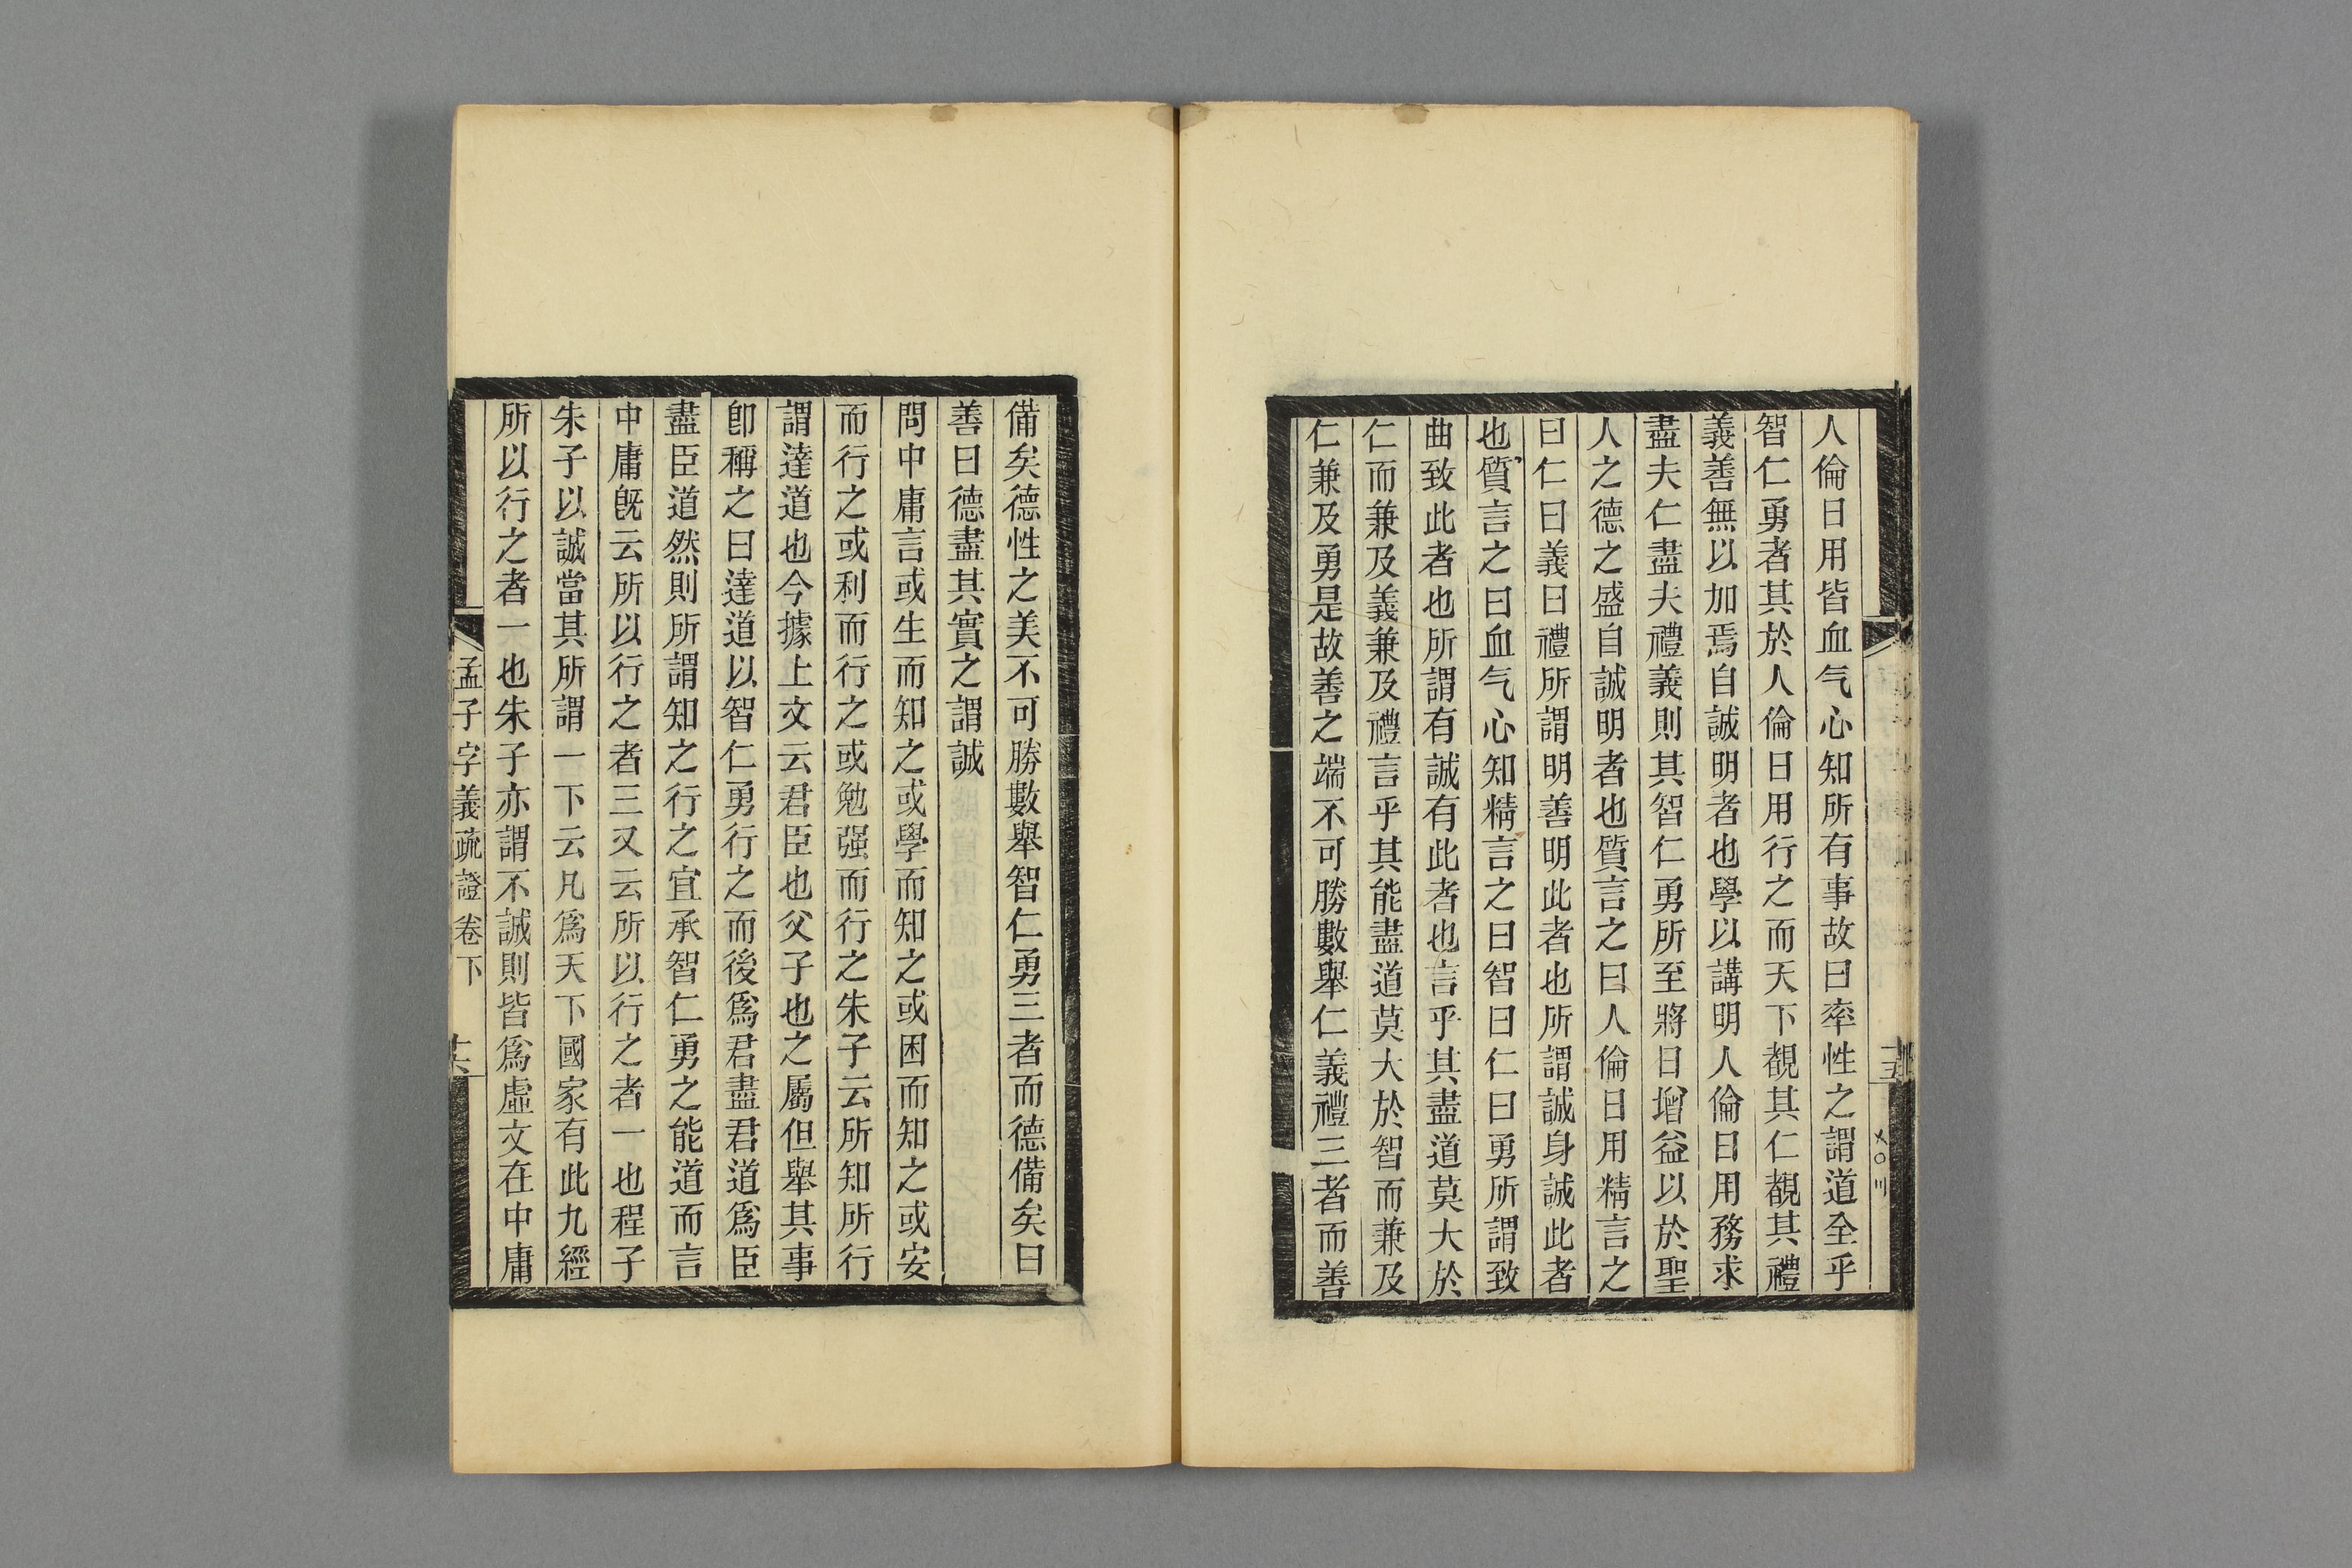 人倫日用皆血气心知所有事故曰率性之謂道全乎
智仁勇者其於人倫日用行之而天下覩其仁覩其禮
義善無以加焉自誠明者也學以講明人倫日用務求
盡夫仁盡夫禮義則其智仁勇所至將日增益以於聖
人之德之盛自誠明者也質言之曰人倫日用精言之
曰仁曰義曰禮所謂明善明此者也所謂誠身誠此者
也質言之曰血气心知精言之曰智曰仁曰勇所謂致
曲致此者也所謂有誠有此者也言乎其盡道莫大於
仁而兼及義兼及禮言乎其能盡道莫大於智而兼及
仁兼及勇是故善之端不可勝數舉仁義禮三者而善
備矣德性之美不可勝數舉智仁勇三者而德備矣曰
善曰德盡其實之謂誠
問中庸言或生而知之或學而知之或困而知之或安
而行之或利而行之或勉强而行之朱子云所知所行
謂達道也今據上文云君臣也父子也之屬但舉其事
卽稱之曰達道以智仁勇行之而後爲君盡君道爲臣
盡臣道然則所謂知之行之宜承智仁勇之能道而言
中庸旣云所以行之者三又云所以行之者一也程子
朱子以誠當其所謂一下云凡爲天下國家有此九經
所以行之者一也朱子亦謂不誠則皆爲虛文在中庸
孟子字義疏證卷下